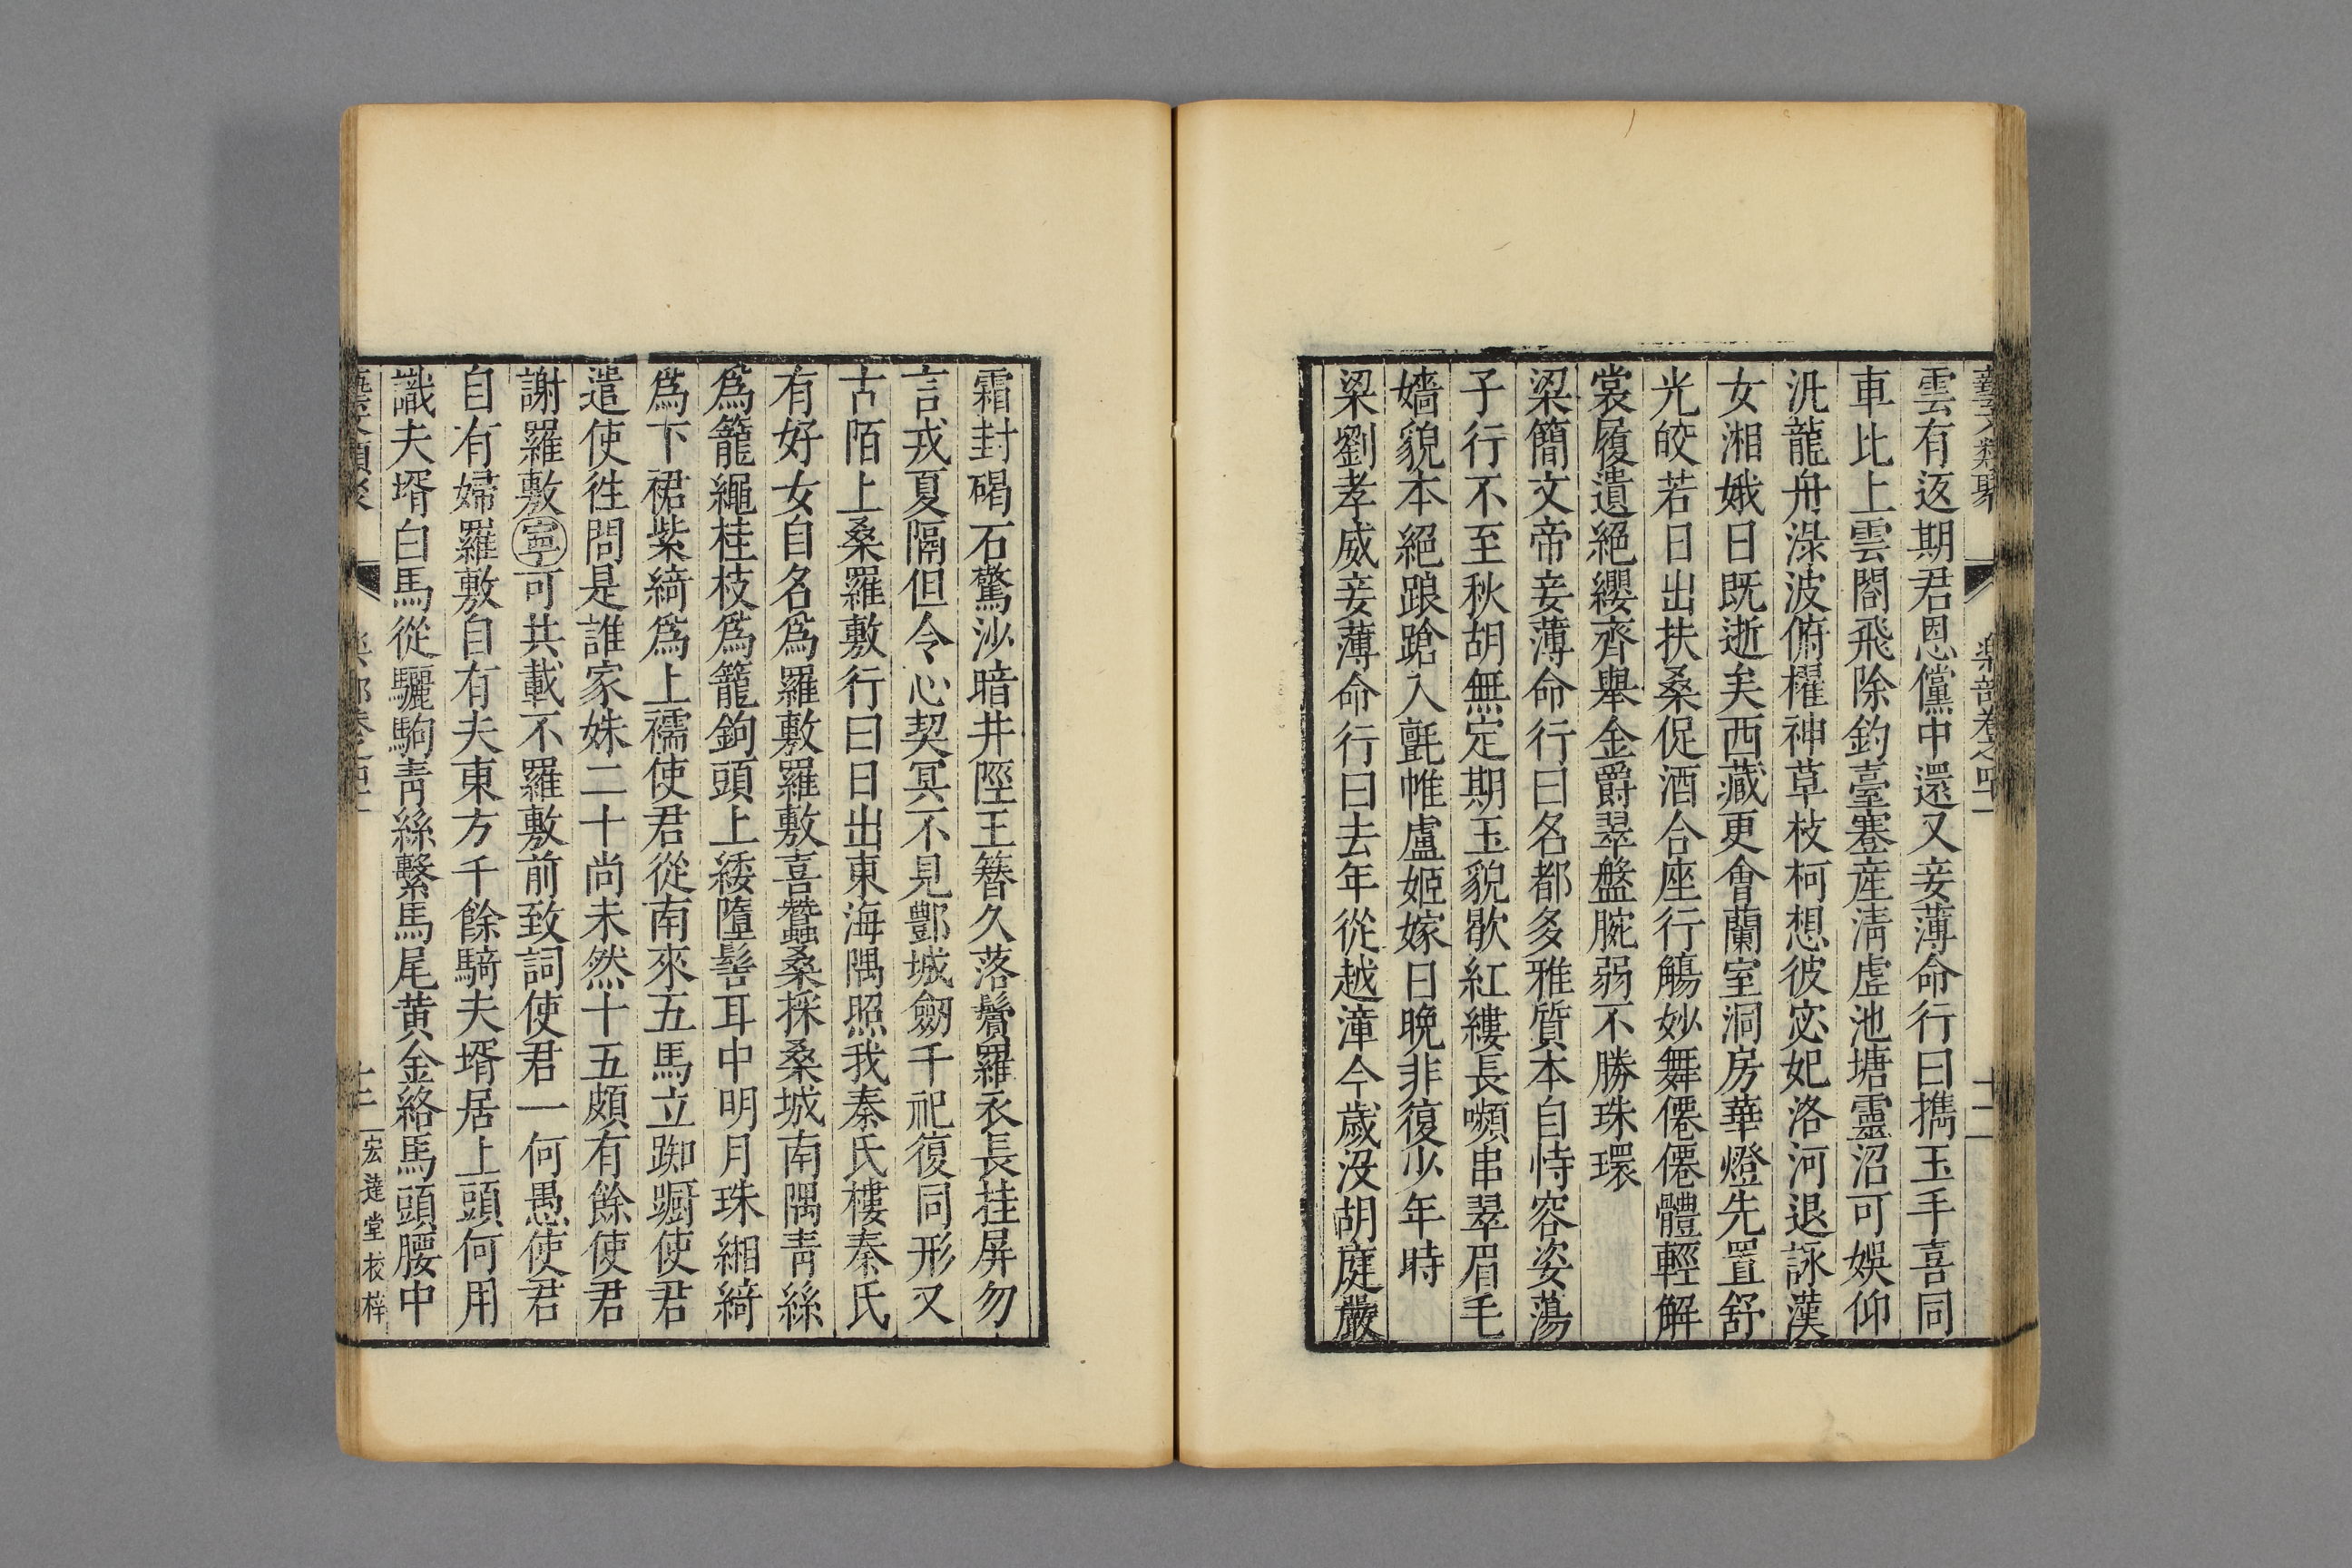 藝文類聚 樂部卷之四十一 十二
雲有返期君恩儻中還又妾薄命行曰擕玉手喜同
車比上雲閤飛除釣臺蹇產淸虛池塘靈沼可娛仰
汎龍舟淥波俯擢神草枝柯想彼宓妃洛河退詠漢
女湘娥日既逝矣西藏更會蘭室洞房華燈先置舒
光皎若日出扶桑促酒合座行觴妙舞僊僊體輕解
裳履遺絕纓齊舉金爵翠盤腕弱不勝珠環
梁簡文帝妾薄命行曰名都多雅質本自恃容姿蕩
子行不至秋胡無定期玉貌歇紅縷長嚬串翠眉毛
嬙貌本絕踉蹌入氈帷盧姬嫁日晚非復少年時
梁劉孝威妾薄命行曰去年從越漳今歲沒胡庭嚴
霜封碣石驚沙暗井陘王簪久落鬢羅衣長挂屏勿
言戎夏隔但令心契冥不見酆城劒千祀復同形又
古陌上桑羅敷行曰日出東海隅照我秦氏樓秦氏
有好女自名爲羅敷羅敷喜蠶桑採桑城南隅靑絲
爲籠繩桂枝爲籠鉤頭上綏墮髻耳中明月珠緗綺
爲下裙紫綺爲上襦使君從南來五馬立踟躕使君
遣使徃問是誰家姝二十尚未然十五頗有餘使君
謝羅敷寧可共載不羅敷前致詞使君一何愚使君
自有婦羅敷自有夫東方千餘騎夫壻居上頭何用
識夫壻白馬從驪駒靑絲繫馬尾黄金絡馬頭腰中
宏達堂校梓